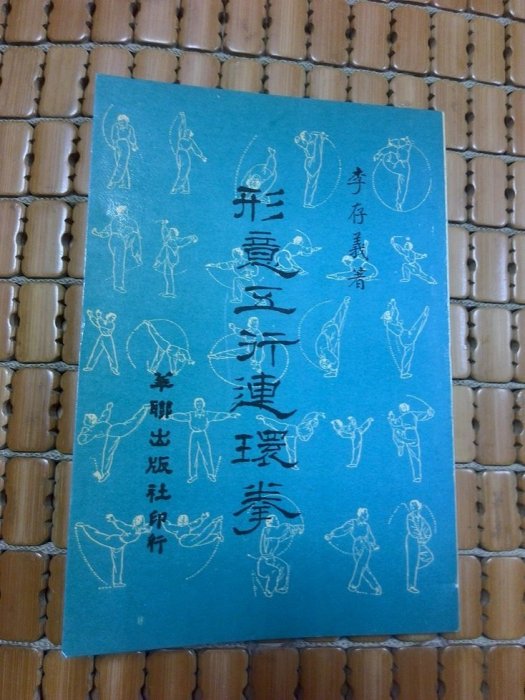 李存義著
形意五行連環拳
華聯出版社印行